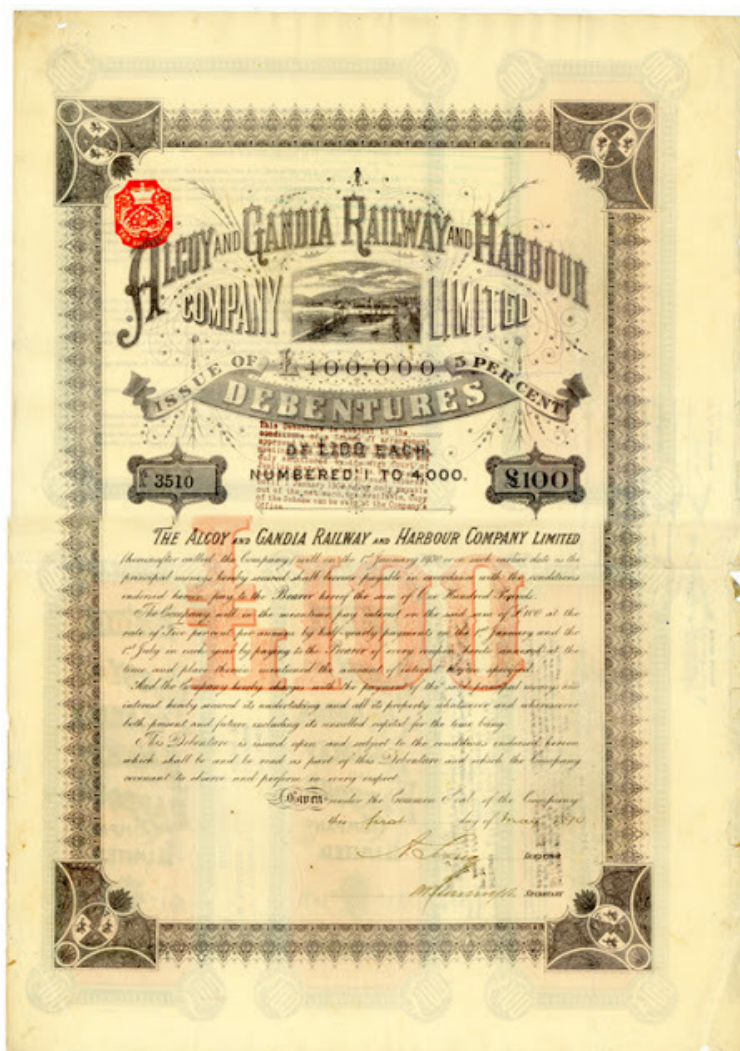 ALCOY AND GANDIA RAILWAY AND HARBOUR
COMPANY LIMITED
ISSUE OF £400,000 5 PER CENT
DEBENTURES
This Debenture is subject to the
OF £100 EACH,
NUMBERED 1 TO 4,000.
out of the net earnings available. Copy
of the Scheme can be seen at the Company's
Office
No 3510
£100
THE ALCOY AND GANDIA RAILWAY AND HARBOUR COMPANY LIMITED
(hereinafter called the Company) will on the 1st January 1930 or on such earlier date as the
principal moneys hereby secured shall become payable in accordance with the conditions
endorsed hereon pay to the Bearer hereof the sum of One Hundred Pounds.
The Company will in the meantime pay interest on the said sum of £100 at the
rate of Five per cent per annum by half-yearly payments on the 1st January and the
1st July in each year by paying to the Bearer of every coupon hereto annexed at the
time and place therein mentioned the amount of interest therein specified.
And the Company hereby charges with the payment of the said principal moneys and
interest hereby secured its undertaking and all its property whatsoever and wheresoever
both present and future including its uncalled capital for the time being
This Debenture is issued upon and subject to the conditions endorsed hereon
which shall be and be read as part of this Debenture and which the Company
covenant to observe and perform in every respect.
Given under the Common Seal of the Company
this first day of May 1890
DIRECTOR
SECRETARY
£100